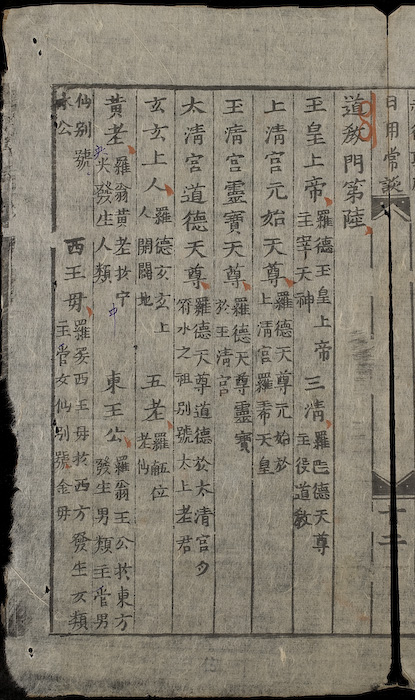 日用常談
十二
道教門第陸
玉皇上帝 羅德玉皇上帝主宰天神 三清 羅𠀧德天尊主役道教
上清宮元始天尊 羅德天尊元始於上清宮羅希天皇
玉清宮靈寶天尊 羅德天尊靈寶於玉清宮
太清宮道德天尊 羅德天尊道德於太清宮 符水之祖別號太上老君
玄玄上人 羅德玄玄上人開闢地 五老 羅𠄼位老仙
黃老 羅翁黃老於中央發生人類 東王公 羅翁王公於東方發生男類主管男
仙別號木公 西王母 羅 西王母於西方發生女類主管女仙別號金母